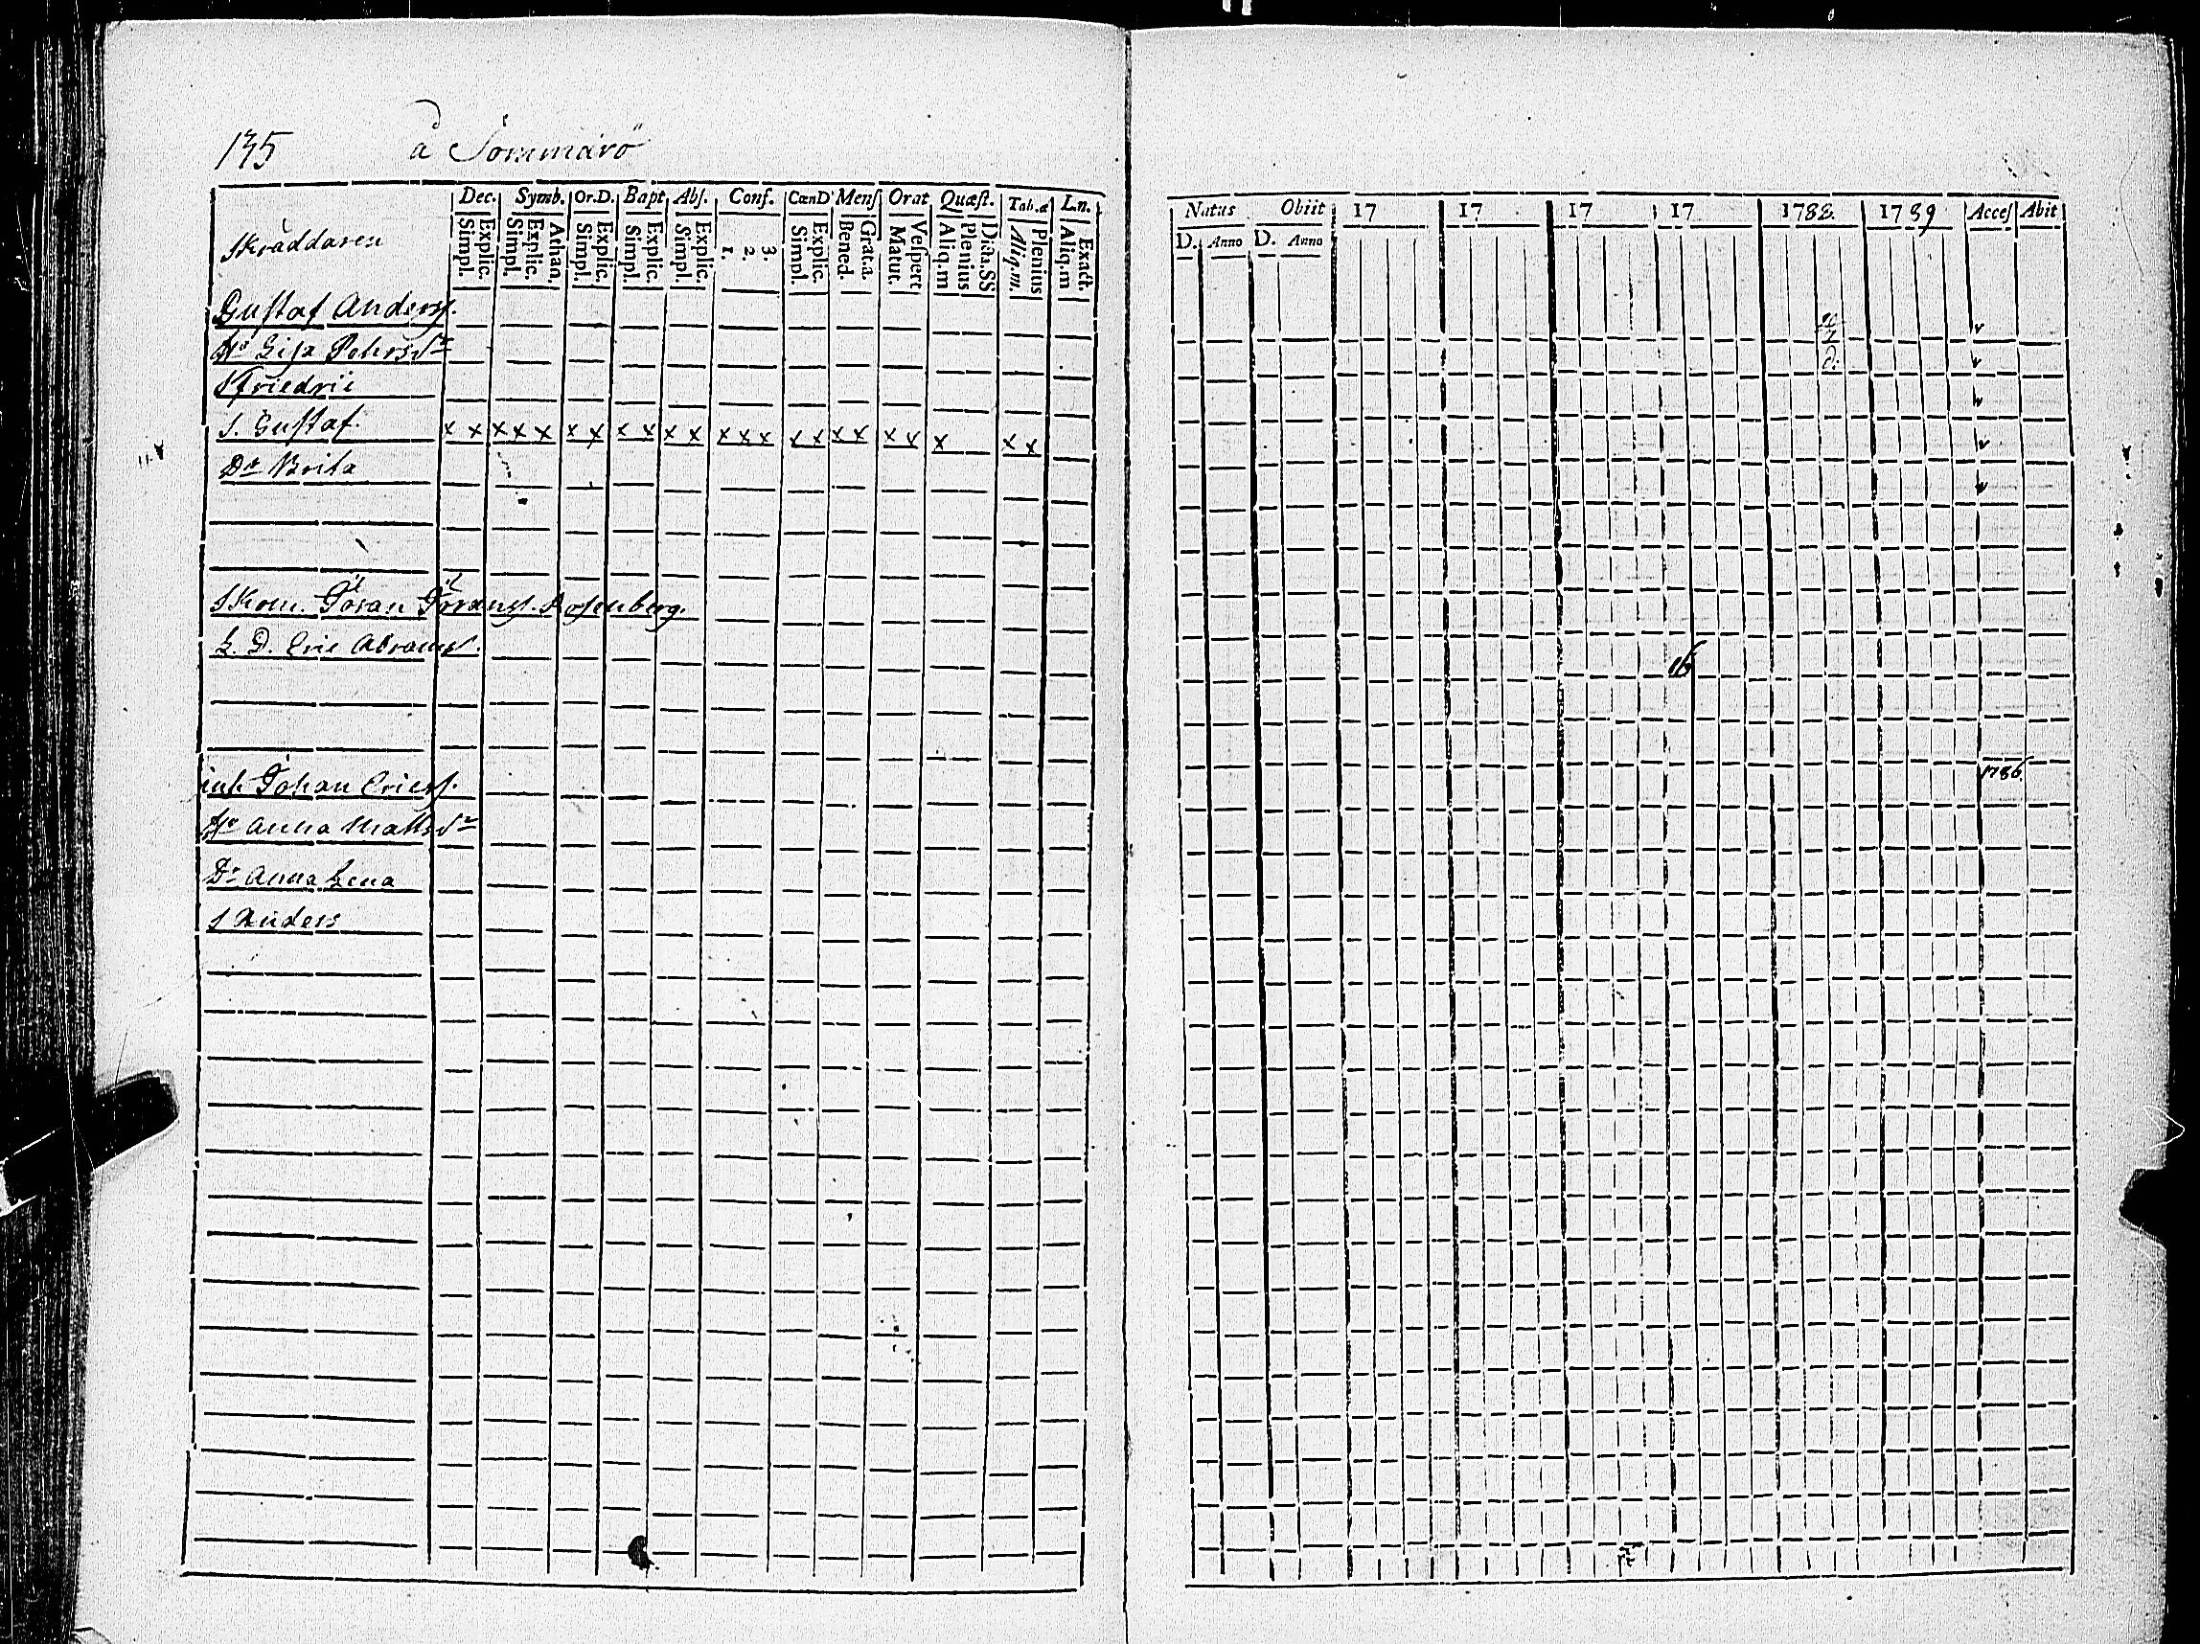 135 å Sommarö
Dec. Symb. Or.D. Bapt Abs. Conf. CœnD Mens Orat Quæst. Tab.æ Ln.
Simpl. Explic. Simpl. Explic. Athan. Simpl. Explic. Simpl. Explic. Simpl. Explic. 1. 2. 3. Simpl. Explic. Bened. Grat.a. Matut. Vespert Aliq.m Plenius Dicta.SS Aliq.m. Plenius Aliq.m Exact.
Skräddaren
Gustaf Anderss.
Lisa Pehrsdr
S. Gustaf. x x x x x x x x x x x x x x x x x x x x x x x
Dr Brita
Skom. Göran Göranss. Rosenberg.
L. D. Eric Abrams.
inh. Johan Ericss.
Anna Mattsdr
Dr Anna Lena
S Anders
Natus Obiit 17 17 17 17 1788. 1789 Acces Abit
D. Anno D. Anno
1786.